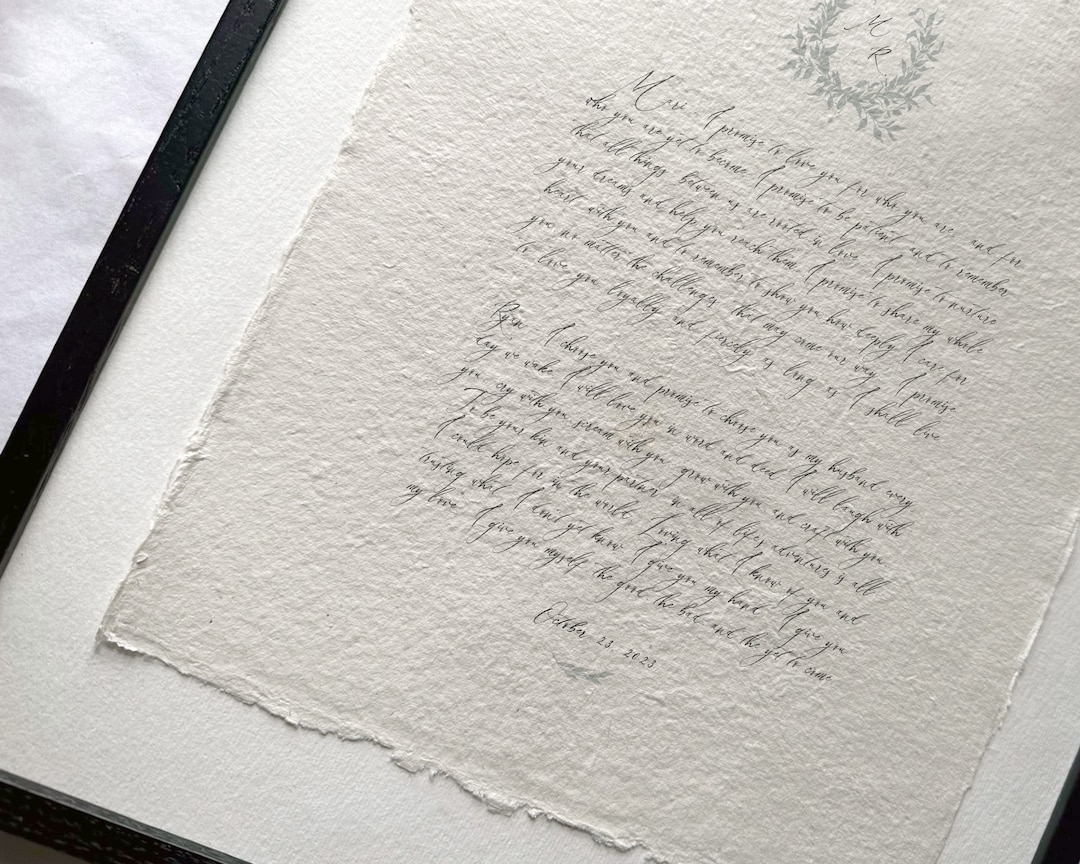 M
R
Mari I promise to love you for who you are and for
who you are yet to become I promise to be patient and to remember
that all things between us are rooted in love I promise to nurture
your dreams and help you reach them I promise to share my whole
heart with you and to remember to show you how deeply I care for
you no matter the challenges that may come our way I promise
to love you loyally and fiercely as long as I shall live
Ryan I choose you and promise to choose you as my husband every
day we wake I will love you in word and deed I will laugh with
you cry with you scream with you grow with you and craft with you
To be your kin and your partner in all of lifes adventures is all
I could hope for in the world Loving what I know of you and
trusting what I dont yet know I give you my hand I give you
my love I give you myself the good the bad and the yet to come
October 23, 2023